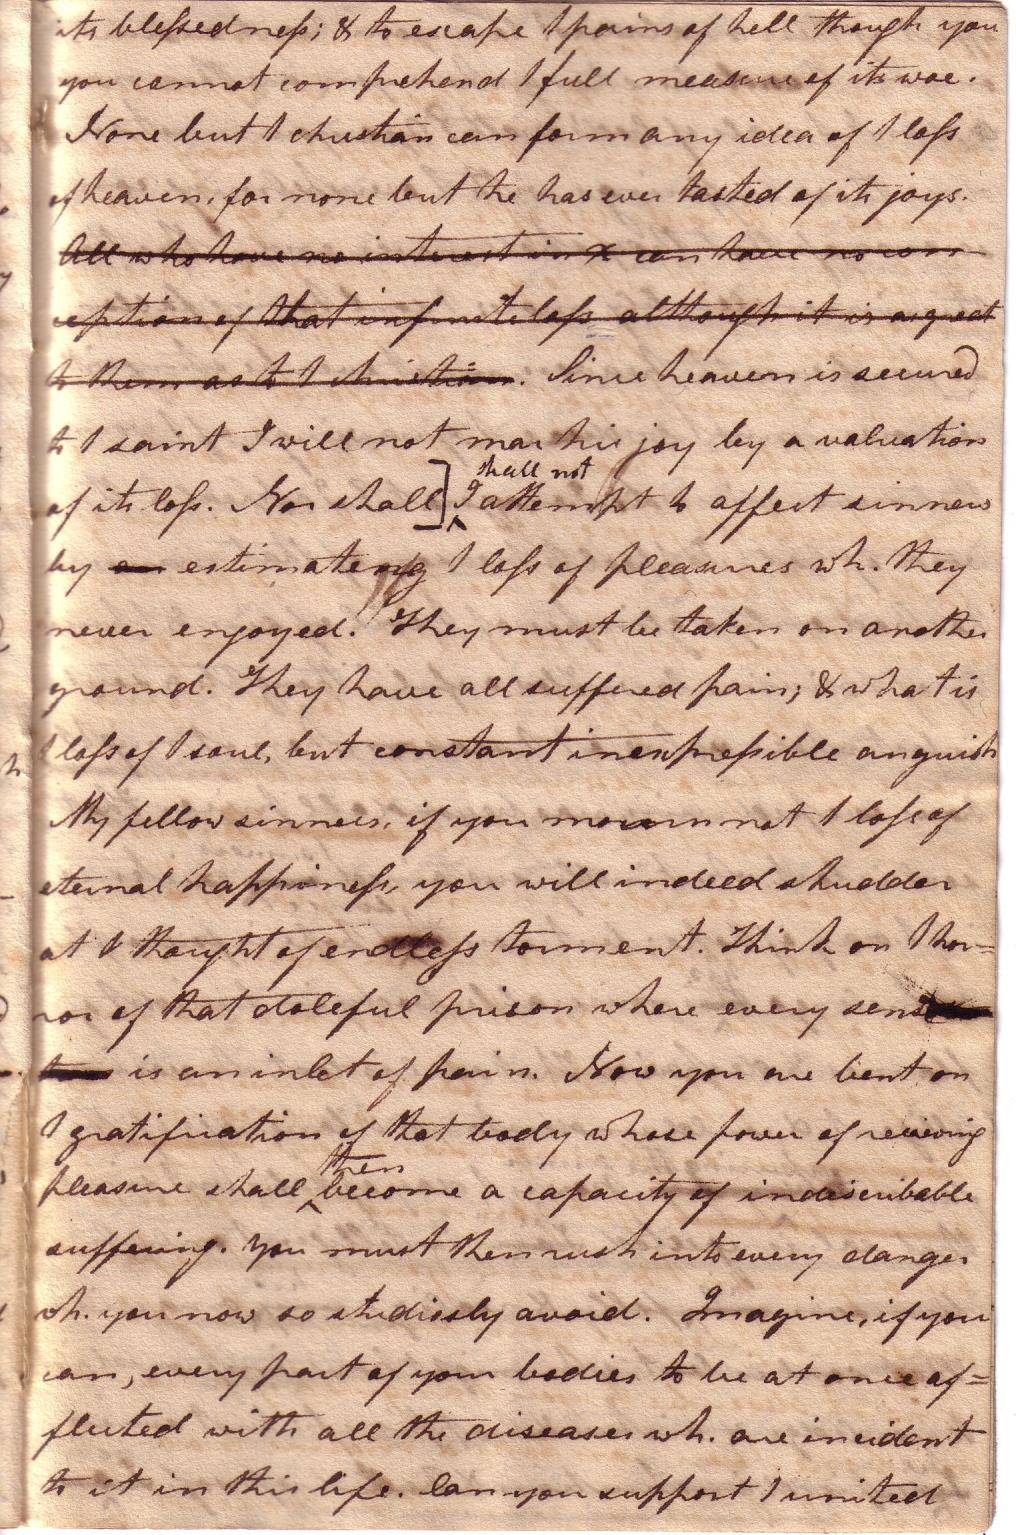 its blessedness; & to escape / pains of hell though you
you cannot comprehend / full measure of its woe.
None but / christian can form any idea of / loss
of heaven, for none but he has ever tasted of its joys.
All who have no interest in X can have no con
ception of that infinite loss although it is as great
to them as to / christian. Since heaven is secured
to / saint I will not mar his joy by a valuation
shall not
of its loss. Nor shall] I attempt to affect sinners
by an estimateing / loss of pleasures wh. they
never enjoyed. They must be taken on another
ground. They have all suffered pain; & what is
/ loss of / soul, but constant inexpressible anguish
My fellow sinners, if you mourn not / loss of
eternal happiness, you will indeed shudder
at / thought of endless torment. Think on / hor=
ror of that doleful prison where every sense
is an inlet of pain. Now you are bent on
/ gratification of that body whose power of receiving
then
pleasure shall become a capacity of indescribable
suffering. You must then rush into every danger
wh. you now so studiosly avoid. Imagine, if you
can, every part of your bodies to be at once af=
flicted with all the diseases wh. are incident
to it in this life. Can you support / united